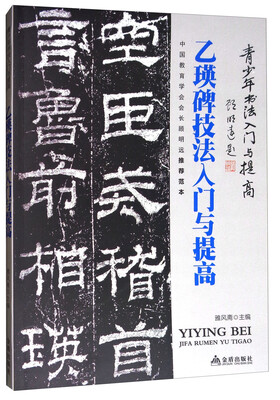 青少年书法入门与提高
顾明远题
乙瑛碑技法入门与提高
中国教育学会会长顾明远推荐范本
空臣戒稽首
言魯前相瑛
雅风斋◎主编
YIYING BEI
JIFA RUMEN YU TIGAO
金盾出版社